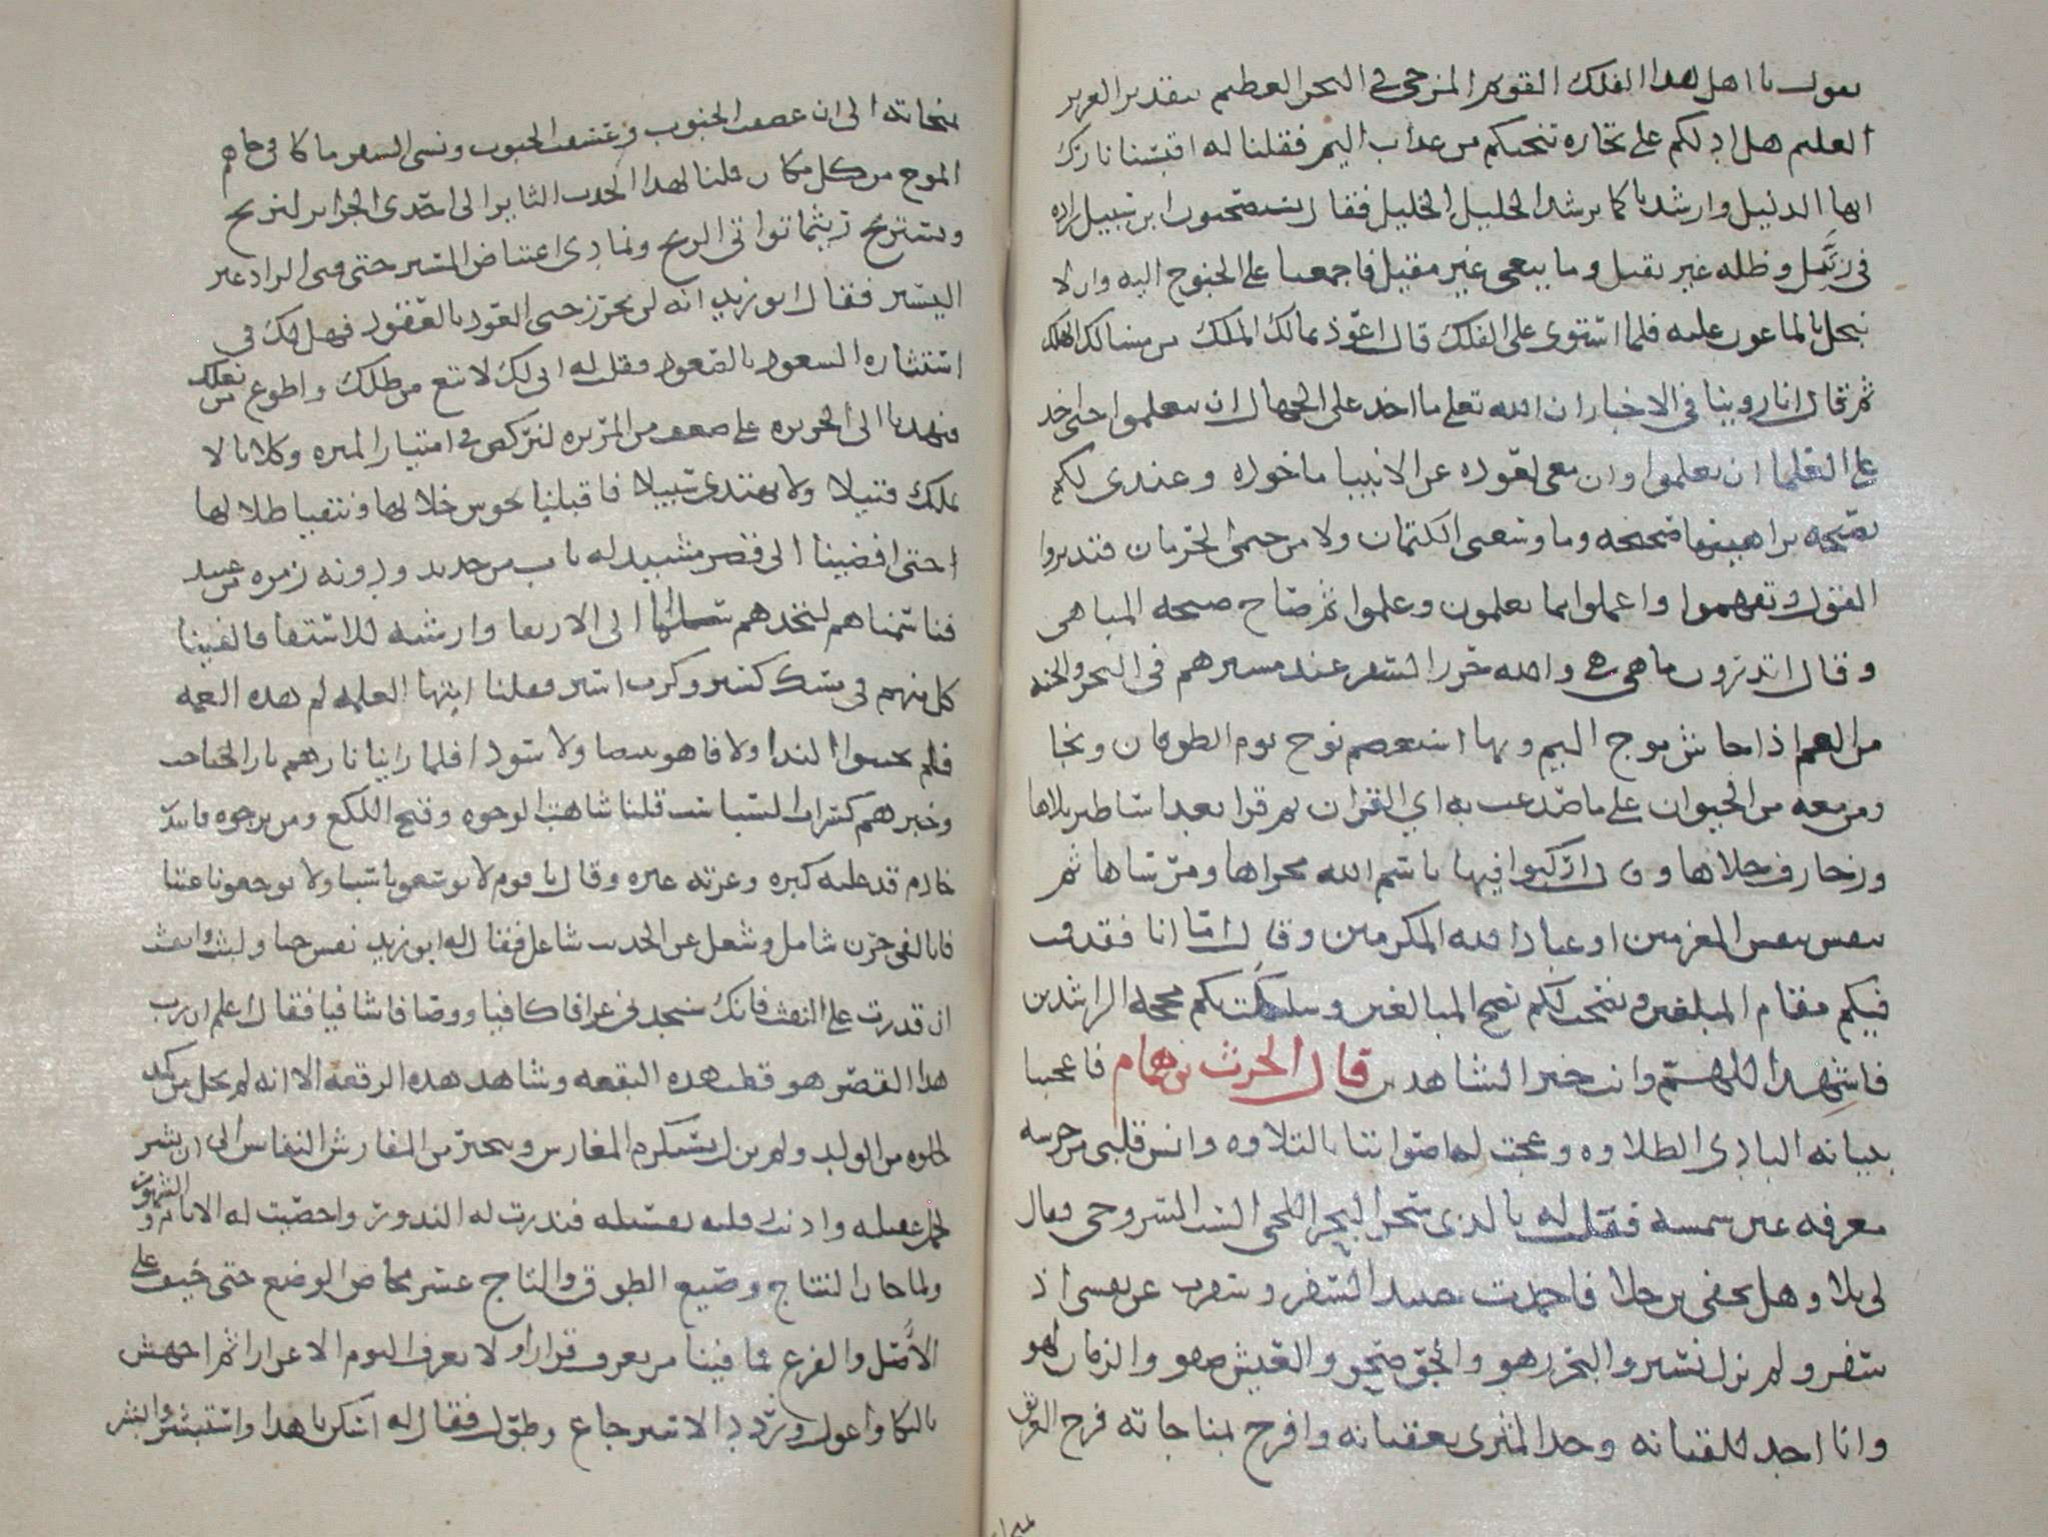 يقول يا اهل هدا الفلك القويم المزجي في البحر العظيم بتقدير العزيز
العليم هل ادلكم على تجاره تنجيكم من عذاب اليم فقلنا له اقبسنا نارك
ايها الدليل وارشدنا كما يرشد الخليل الخليل فقال تستصحبون ابن سبيل زاده
في زبيل وظله غير ثقيل وما يبغي غير مقيل فاجمعنا على الجنوح اليه وان لا
نبخل بالماعون عليه فلما استوى على الفلك قال اعوذ بمالك الملك من مسالك الهلك
ثم قال انا روينا في الاخبار ان الله تعلى ما اخد على الجهال ان يتعلموا حتى اخد
على العلما ان يعلموا وان معي لعوده عن الانبيا ماخوده وعندي لكم
نصيحه براهينها صحيحه وما وسعني الكتمان ولا من خيمي الحرمان فتدبروا
القول وتفهموا واعملوا بما تعلمون وعلموا ثم صاح صيحه المباهي
وقال اتدرون ما هي هي والله حرز السفر عند مسيرهم في البحر والجنه
من الغم اذا جاش موج اليم وبها استعصم نوح يوم الطوفان ونجا
ومن معه من الحيوان على ما صدعت به اي القران ثم قرا بعد اساطير تلاها
وزخارف جلاها وقال اركبوا فيها باسم الله مجراها ومرساها ثم
تنفس تنفس المغرمين او عباد الله المكرمين وقال اما انا فقد قمت
فيكم مقام المبلغين ونصحت لكم نصح المبالغين وسلكت بكم محجه الراشدين
فاشهد اللهم وانت خير الشاهدين قال الحرث بن همام فاعجبنا
بيانه البادي الطلاوه وعجت له اصواتنا بالتلاوه وانس قلبي من جرسه
معرفه عين شمسه فقلت له بالدي سخر البحر اللجي الست السروجي فقال
لي بلا وهل يخفى ابن جلا فاحمدت حينيد السفر وسفرت عن نفسي اذ
سفر ولم نزل نسير والبحر رهو والجو صحو والعيش صفو والزمان لهو
وانا اجد للقيانه وجد المثري بعقيانه وافرح بمناجاته فرح الغريق
بنجاته الى ان عصفت الجنوب وعسفت الجنوب ونسي السفر ما كان وجاهم
الموج من كل مكان فملنا لهدا الحدث الثاير الى احدى الجزاير لنريح
ونستريح ريثما تواتي الريح وتمادى اعتياض المسير حتى نفد الزاد غير
اليسير فقال ابو زيد انه لن يحرز جنى العود بالقعود فهل لك في
استثاره السعود بالصعود فقلت له اني لك لاتبع من ظلك واطوع من نعلك
فنهدنا الى الجزيره على ضعف من المريره لنركض في امتيار الميره وكلانا لا
يملك فتيلا ولا يهتدي سبيلا فاقبلنا نجوس خلالها ونتفيا ظلالها
حتى افضينا الى قصر مشيد له باب من حديد ودونه زمره من عبيد
فناسمناهم لنتخدهم سلما الى الارتقا وارشيه للاستقا فالفينا
كل منهم في مسك كسير وكرب اسير فقلنا ايتها الغلمه لم هده الغمه
فلم يجيبوا الندا ولا فاهوا ببيضا ولا سودا فلما راينا نارهم نار الحباحب
وخبرهم كسراب السباسب قلنا شاهت الوجوه وقبح اللكع ومن يرجوه فابتدر
خادم قد علته كبره وعرته عبره وقال يا قوم لا توسعونا سبا ولا توجعونا عتبا
فانا لفي حزن شامل وشغل عن الحديث شاغل فقال له ابو زيد نفس خناق البث وانفث
ان قدرت على النفث فانك ستجد في عرافا كافيا ووصافا شافيا فقال اعلم ان رب
هدا القصر هو قطب هده البقعه وشاهد هده الرقعه الا انه لم يخل من كمد
لخلوه من الولد ولم يزل يستكرم المغارس ويتخير من المفارش النفايس الى ان بشر
بحمل عقيله واذنت رقله بفسيله فندرت له الندور واحصيت له الايام والشهور
ولما حان النتاج وصيغ الطوق والتاج عسر مخاض الوضع حتى خيف على
الاصل والفرع فما فينا من يعرف قرارا ولا يعرف النوم الا غرارا ثم اجهش
بالبكا واعول وردد الاسترجاع وطول فقال له اسكن يا هدا واستبشر وابشر